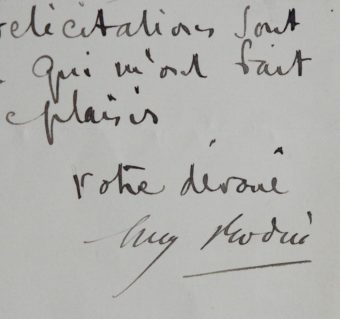 félicitations sont
qui m'ont fait
plaisir
votre dévoué
Aug Rodin